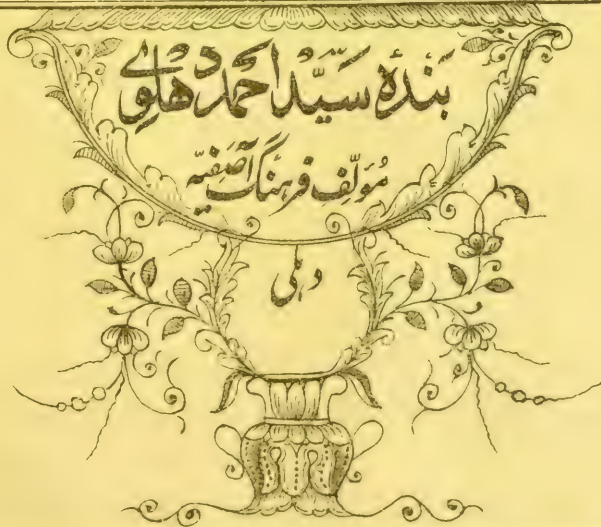 بندۂ سیّد احمد دهلوی
مُؤلّفِ فرہنگِ آصفیّہ
دہلی